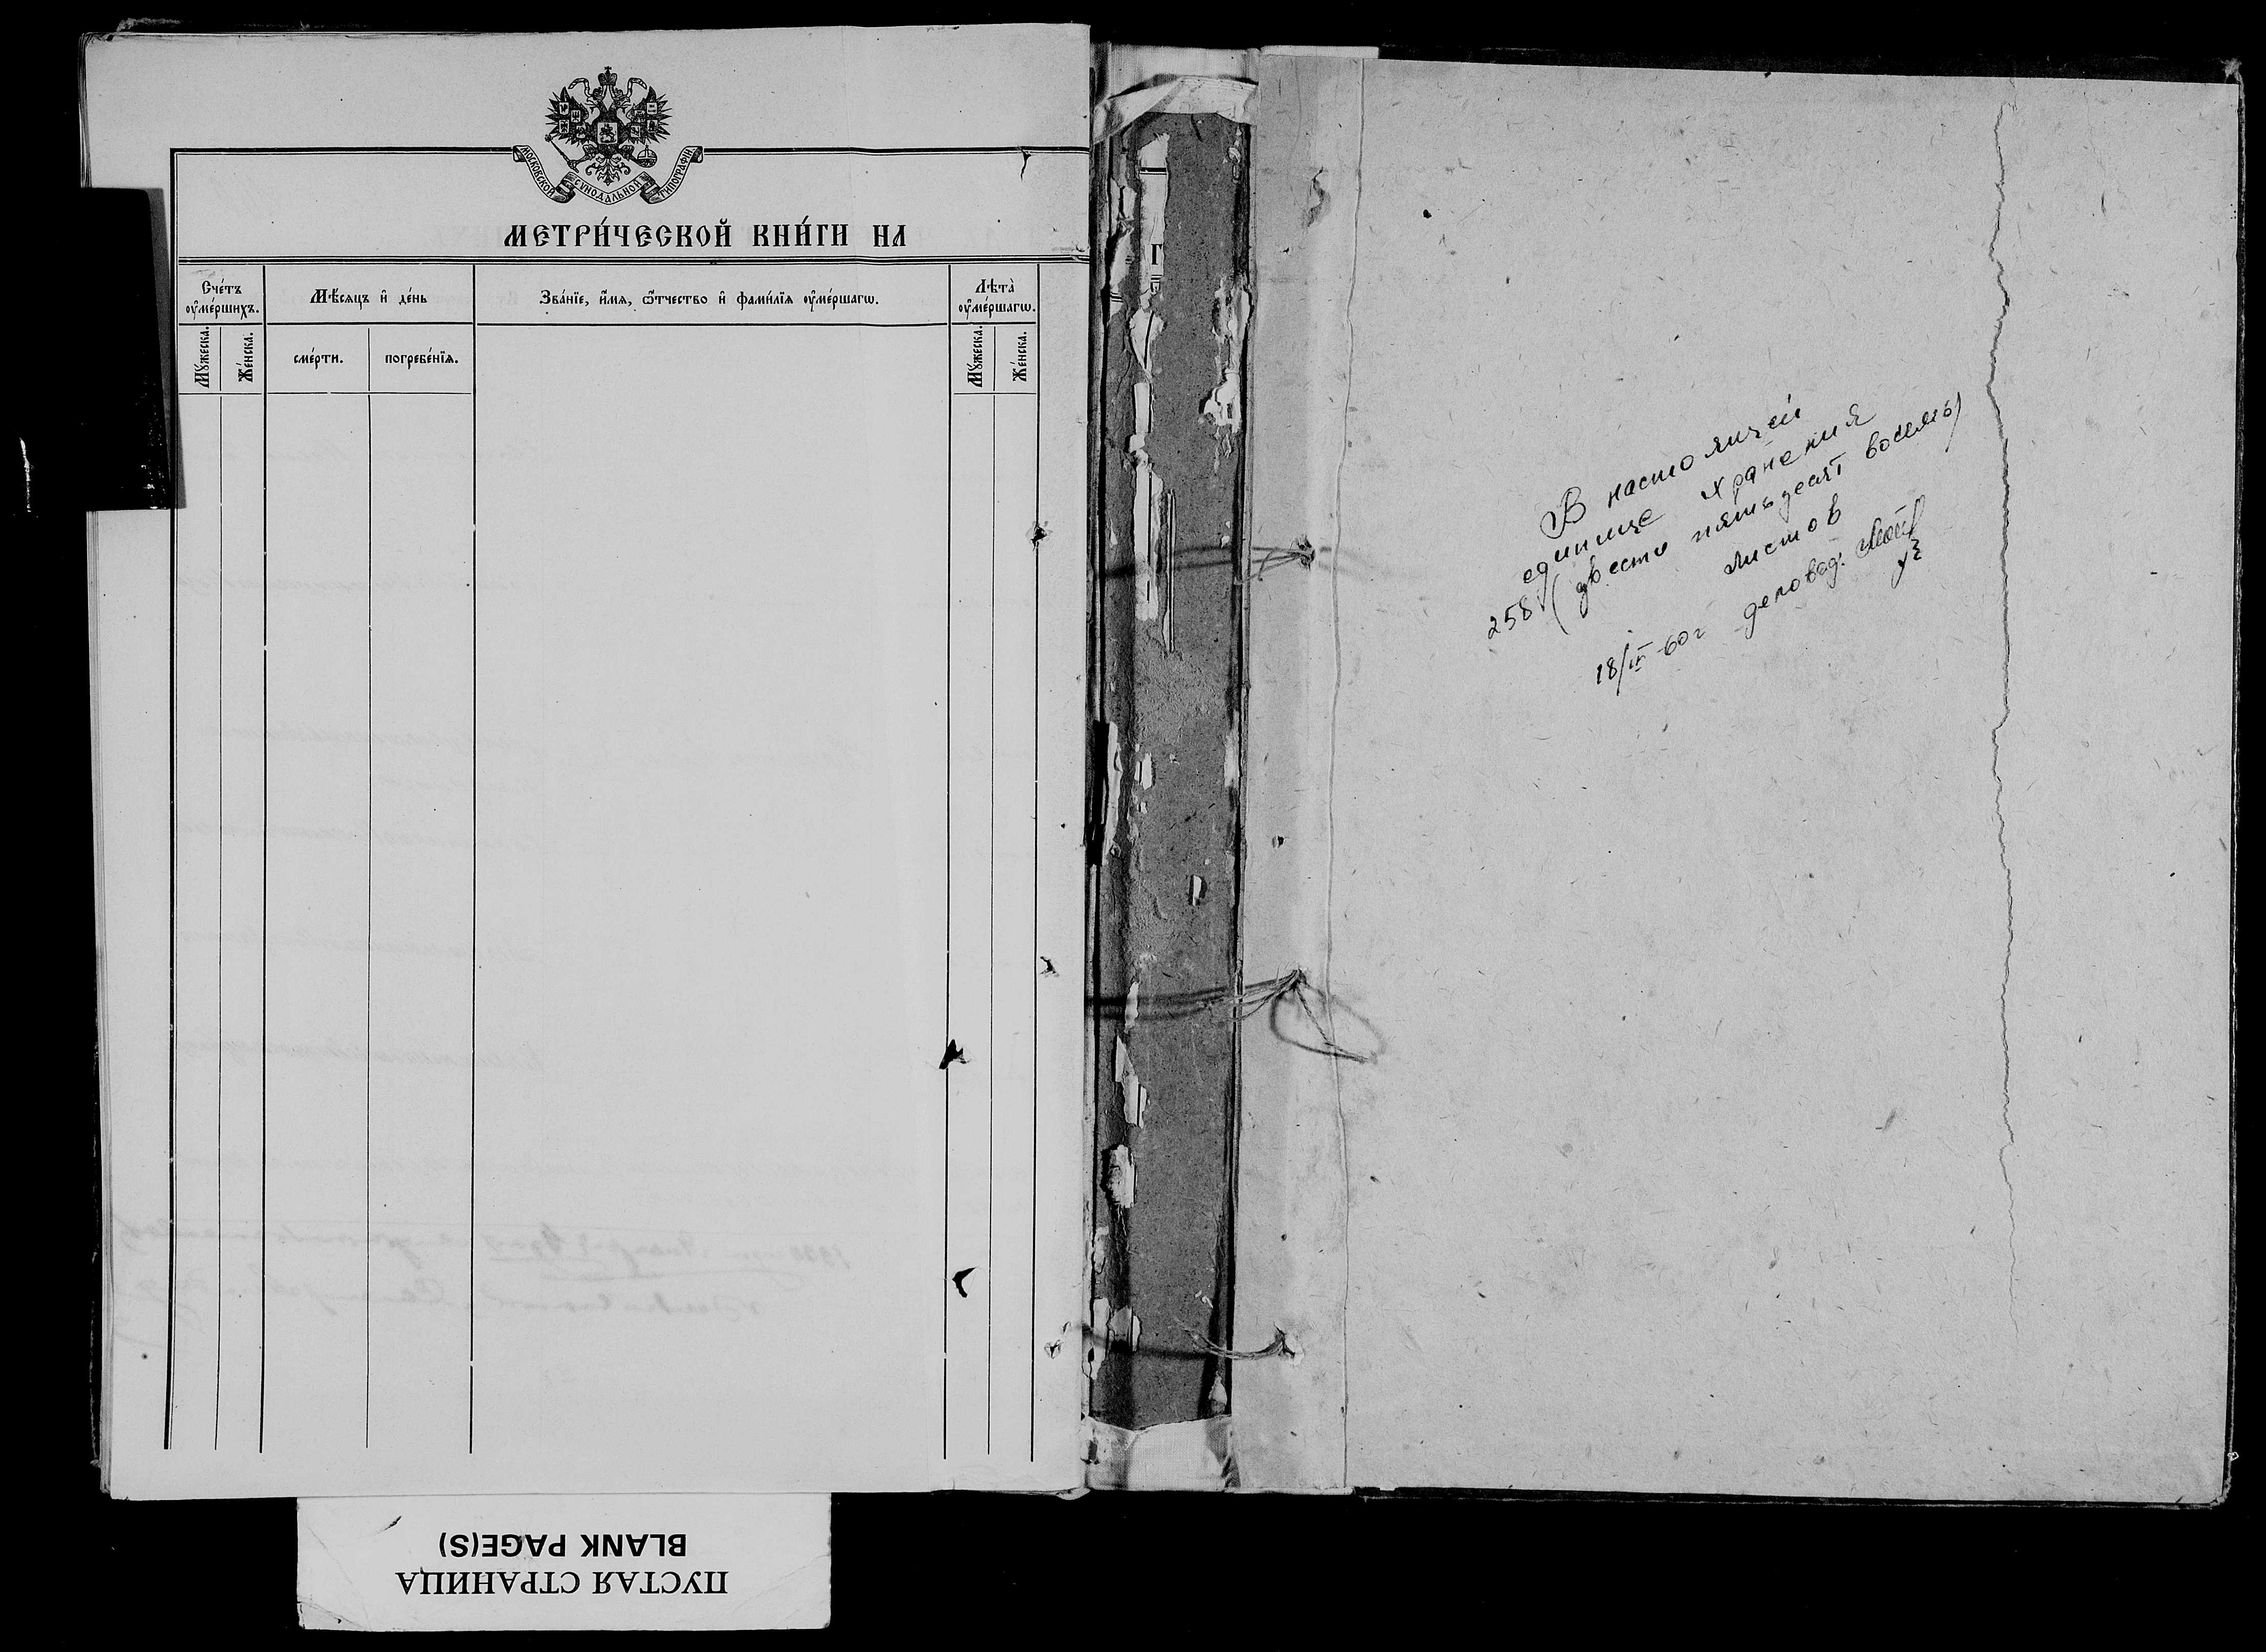 МОСКОВСКОЙ СѴНОДАЛЬНОЙ ТИПОГРАФІИ
МЕТРИ́ЧЕСКОЙ КНИ́ГИ НА
Сче́тъ оу҆ме́ршихъ.
Мѣ́сяцъ и҆ де́нь
Зва́нїе, и҆́мя, ѻ҆́тчество и҆ фами́лїя оу҆ме́ршагѡ.
Лѣта̀ оу҆ме́ршагѡ.
Мꙋ́жеска.
Же́нска.
сме́рти.
погребе́нїя.
Мꙋ́жеска.
Же́нска.
В настоящей
единице хранения
258 (двести пятьдесят восемь)
листов
18/IV-60г деловод.
ПУСТАЯ СТРАНИЦА
BLANK PAGE(S)